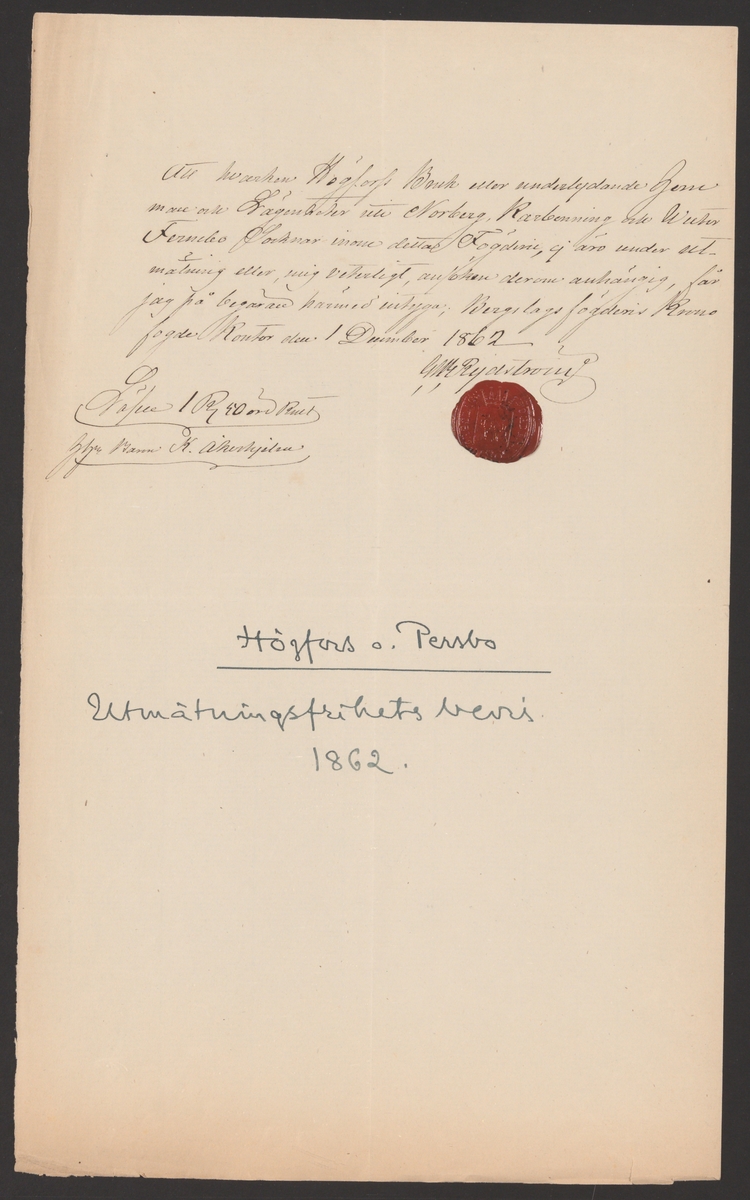 Att hvarken Högforss Bruk eller underlydande Hem
man och Lägenheter uti Norberg, Karbenning och Wester
Fernebo Socknar inom detta Fögderie, ej äro under ut-
mätning eller, mig veterligt, ansökan derom anhängig, får
jag på begäran härmed intyga; Bergslags fögderis Krono
fogde Kontor den 1 December 1862
Rydström
Lösen 1 Rd 50 öre Rmt
Herr Baron K. Åkerhjelm
Högfors o. Persbo
Utmätningsfrihets bevis
1862.